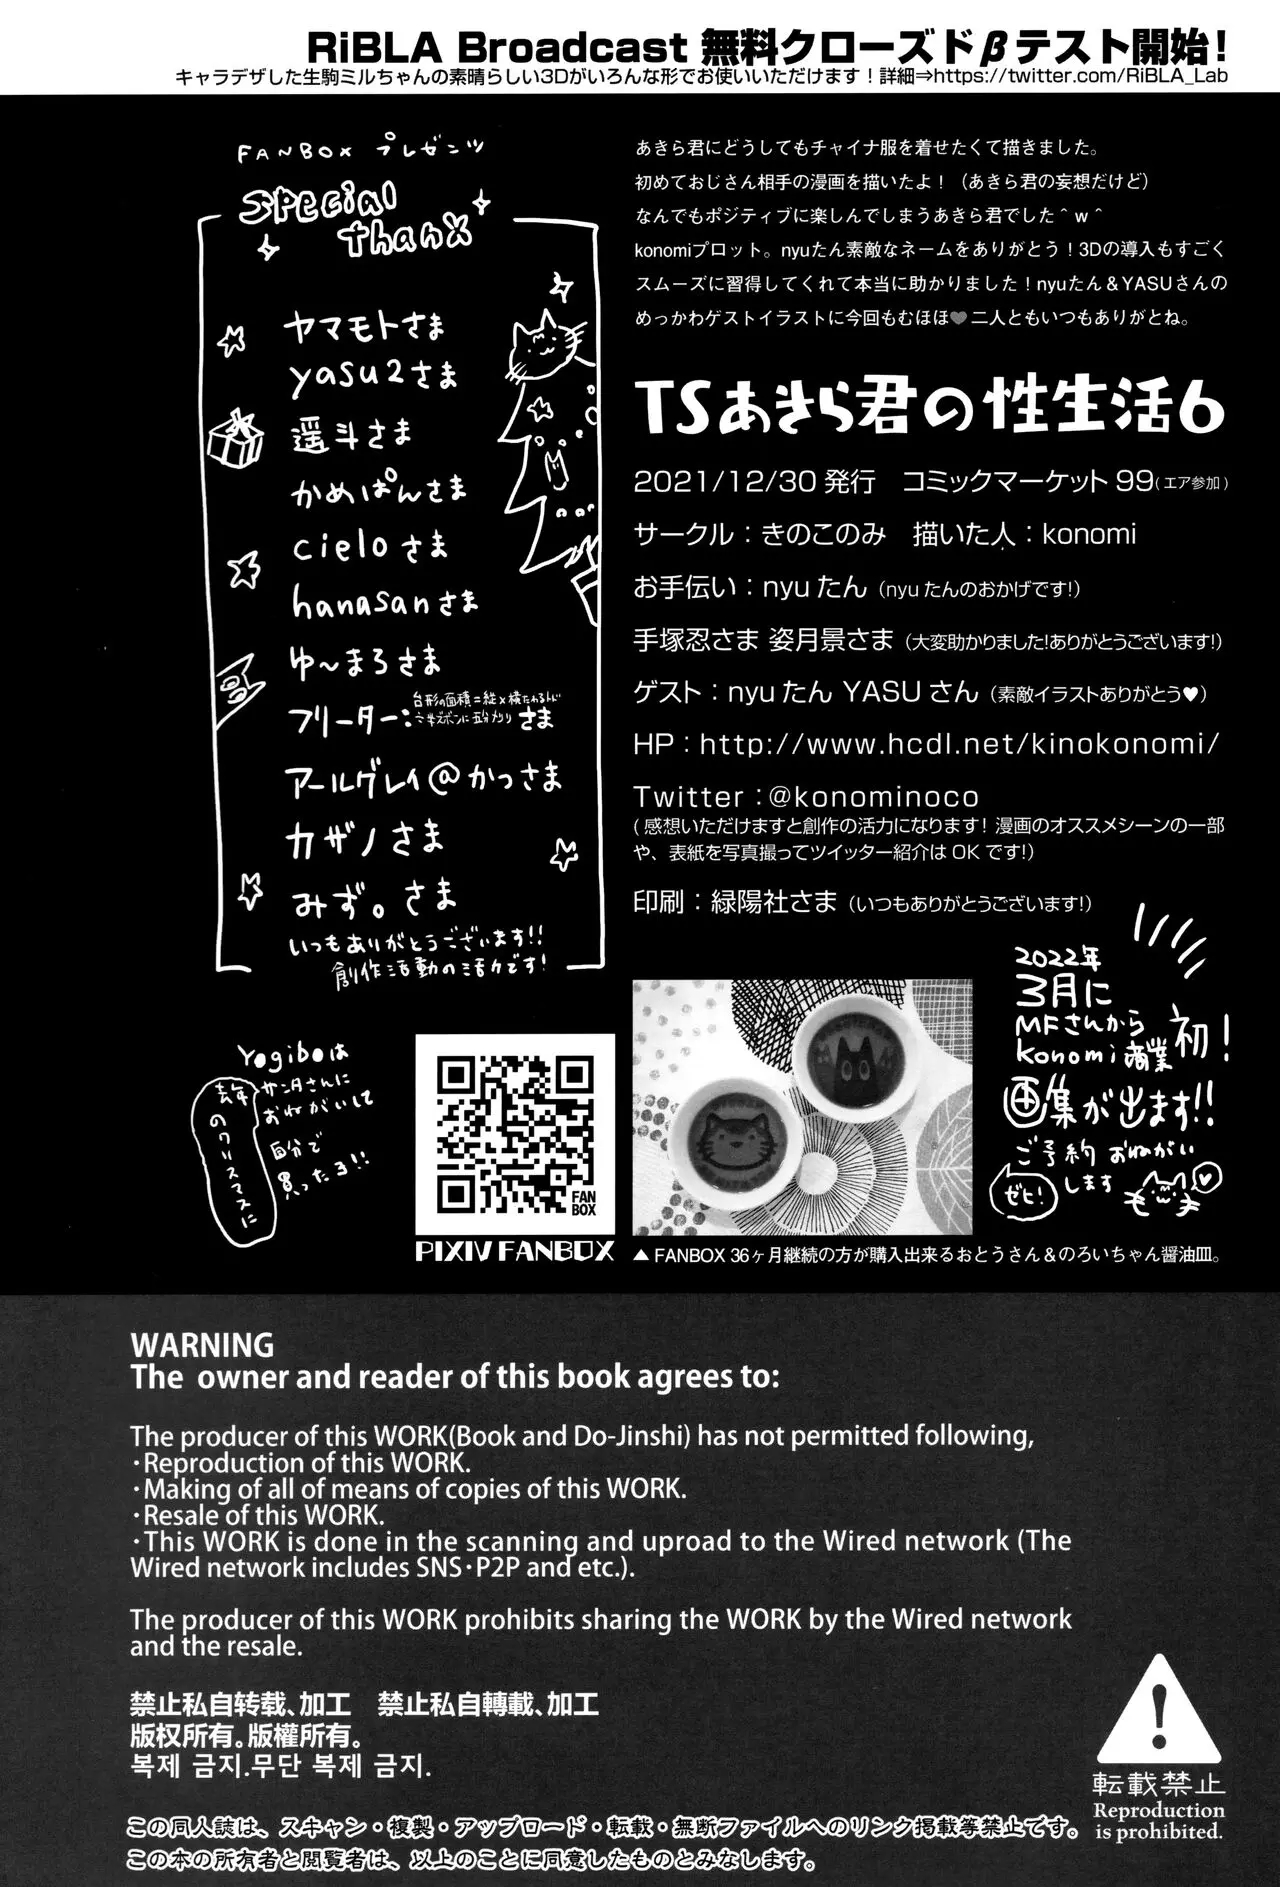 RiBLA Broadcast 無料クローズドβテスト開始！
キャラデザした生駒ミルちゃんの素晴らしい3Dがいろんな形でお使いいただけます！詳細⇒https://twitter.com/RiBLA_Lab
FANBOX プレゼンツ
special
thanx
ヤマモトさま
yasu2さま
遥斗さま
かめぱんさま
cieloさま
hanasanさま
ゆ〜まろさま
フリーター：台形の面積＝縦×横たわるトド
さま
アールグレイ@かっさま
カザノさま
みず。さま
いつもありがとうございます!!
創作活動の活力です!
あきら君にどうしてもチャイナ服を着せたくて描きました。
初めておじさん相手の漫画を描いたよ！（あきら君の妄想だけど）
なんでもポジティブに楽しんでしまうあきら君でした＾ｗ＾
konomiプロット。nyuたん素敵なネームをありがとう！3Dの導入もすごく
スムーズに習得してくれて本当に助かりました！nyuたん＆YASUさんの
めっかわゲストイラストに今回もむほほ♥二人ともいつもありがとね。
TSあきら君の性生活6
2021/12/30 発行　コミックマーケット 99（エア参加）
サークル：きのこのみ　描いた人：konomi
お手伝い：nyuたん（nyuたんのおかげです！）
手塚忍さま 姿月景さま（大変助かりました！ありがとうございます！）
ゲスト：nyuたん YASUさん（素敵イラストありがとう♥）
HP：http://www.hcdl.net/kinokonomi/
Twitter：@konominoco
（感想いただけますと創作の活力になります！漫画のオススメシーンの一部
や、表紙を写真撮ってツイッター紹介は OK です！）
印刷：緑陽社さま（いつもありがとうございます！）
2022年
3月に
MFさんから
konomi商業初！
画集が出ます!!
ご予約おねがい
します
ゼヒ!
Yogiboは
去年のクリスマスに
サンタさんに
おねがいして
自分で
買ったよ!!
FAN
BOX
PIXIV FANBOX
▲ FANBOX 36ヶ月継続の方が購入出来るおとうさん＆のろいちゃん醤油皿。
WARNING
The owner and reader of this book agrees to:
The producer of this WORK(Book and Do-Jinshi) has not permitted following,
・Reproduction of this WORK.
・Making of all of means of copies of this WORK.
・Resale of this WORK.
・This WORK is done in the scanning and uproad to the Wired network (The
Wired network includes SNS・P2P and etc.).
The producer of this WORK prohibits sharing the WORK by the Wired network
and the resale.
禁止私自转载、加工　禁止私自轉載、加工
版权所有。版權所有。
복제 금지.무단 복제 금지.
転載禁止
Reproduction
is prohibited.
この同人誌は、スキャン・複製・アップロード・転載・無断ファイルへのリンク掲載等禁止です。
この本の所有者と閲覧者は、以上のことに同意したものとみなします。